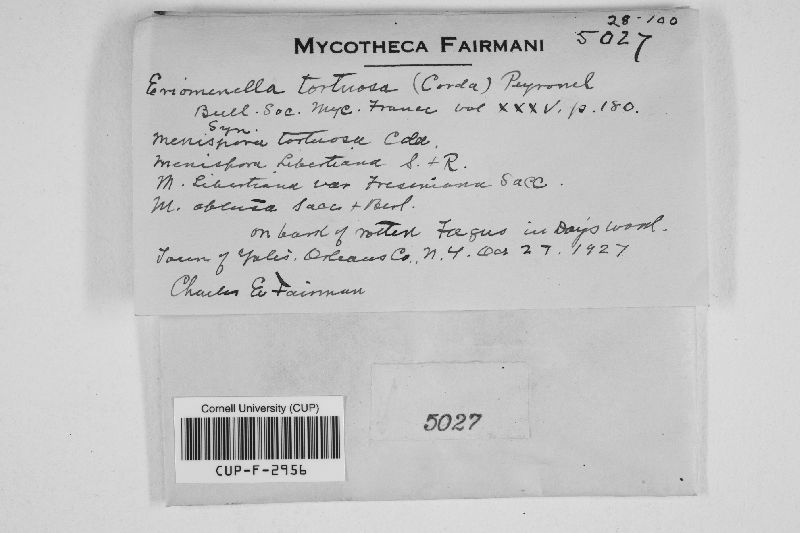 28-100
MYCOTHECA FAIRMANI 5027
Eriomenella tortuosa (Corda) Peyronel
Bull. Soc. Myc. France vol XXXV. p. 180.
Syn.
Menispora tortuosa Cda.
Menispora Libertiana S. + R.
M. Libertiana var Freseniana Sacc.
M. obtusa Sacc + Berl.
on bark of rotten Fagus in Day's Wood.
Town of Yates. Orleans Co., N.Y. Oct 27. 1927
Charles E. Fairman
Cornell University (CUP)
CUP-F-2956
5027